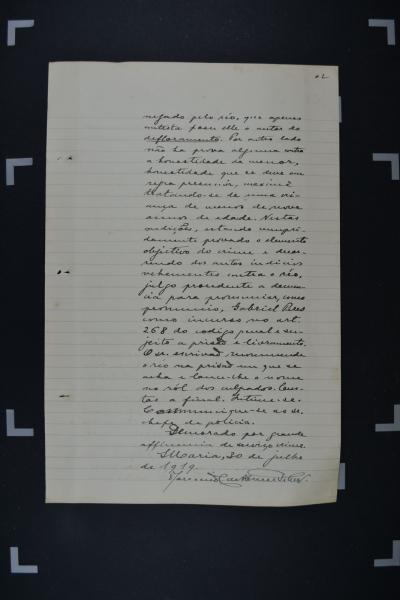 02
negado pelo réo, que apenas
contesta fosse elle o autor do
defloramento. Por outro lado
não ha prova alguma contra
a honestidade da menor,
honestidade que se deve em
regra presumir, maximé
tratando-se de uma cri-
ança de menos de nove
annos de edade. Nestas
condições, estando cumpri-
damente provado o elemento
objectivo do crime e decor-
rendo dos autos indicios
vehementes contra o réo,
julgo procedente a denun-
cia para pronunciar, como
pronuncio, Gabriel
como incurso no art.
268 do codigo penal e su-
jeito a prisão e livramento.
O sr. escrivão recommende
o réo na prisão em que se
acha e lance-lhe o nome
no ról dos culpados. Cus-
tas a final. Intime-se.
Communique-se ao sr.
chefe de policia.
Demorado por grande
affluencia de serviço crime.
S Maria, 30 de julho
de 1919.